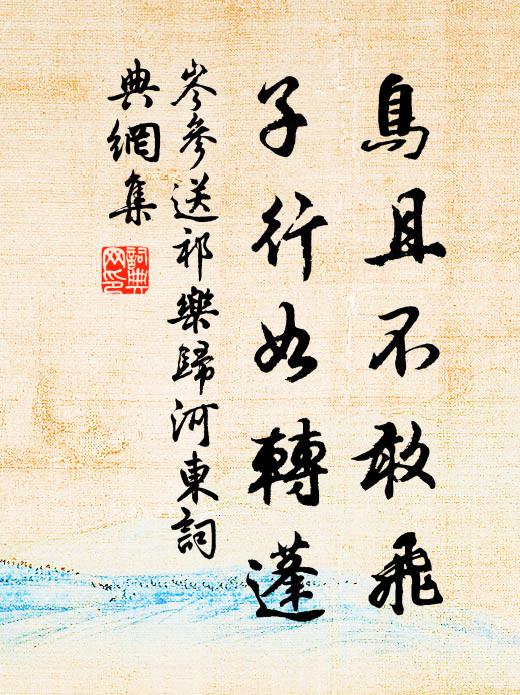 鳥且不敢飛
子行如轉蓬
岑參送祁樂歸河東詞
典網集
詞典
网印